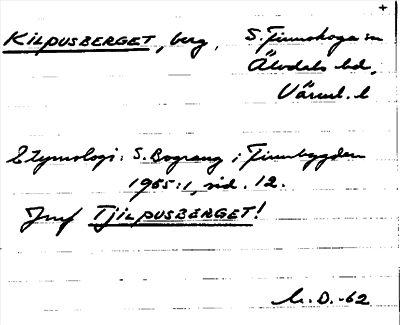 +
KILPUSBERGET, berg, S. Finnskoga sn
Älvdals hd,
Värml. l
Etymologi: S. Bograng i Finnbygden
1955:1, sid. 12.
Jmf TJILPUSBERGET!
D. -62